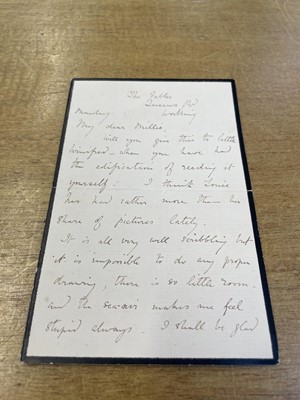 The Gables
Queens Rd
Monday Worthing
My dear Millie,
will you give this to little
Winifred - when you have had
the edification of reading it
yourself: - I think
has had rather more than her
share of pictures lately.
It is all very well scribbling but
it is impossible to do any proper
drawing, there is so little room
and the sea-air makes me feel
stupid always. I shall be glad